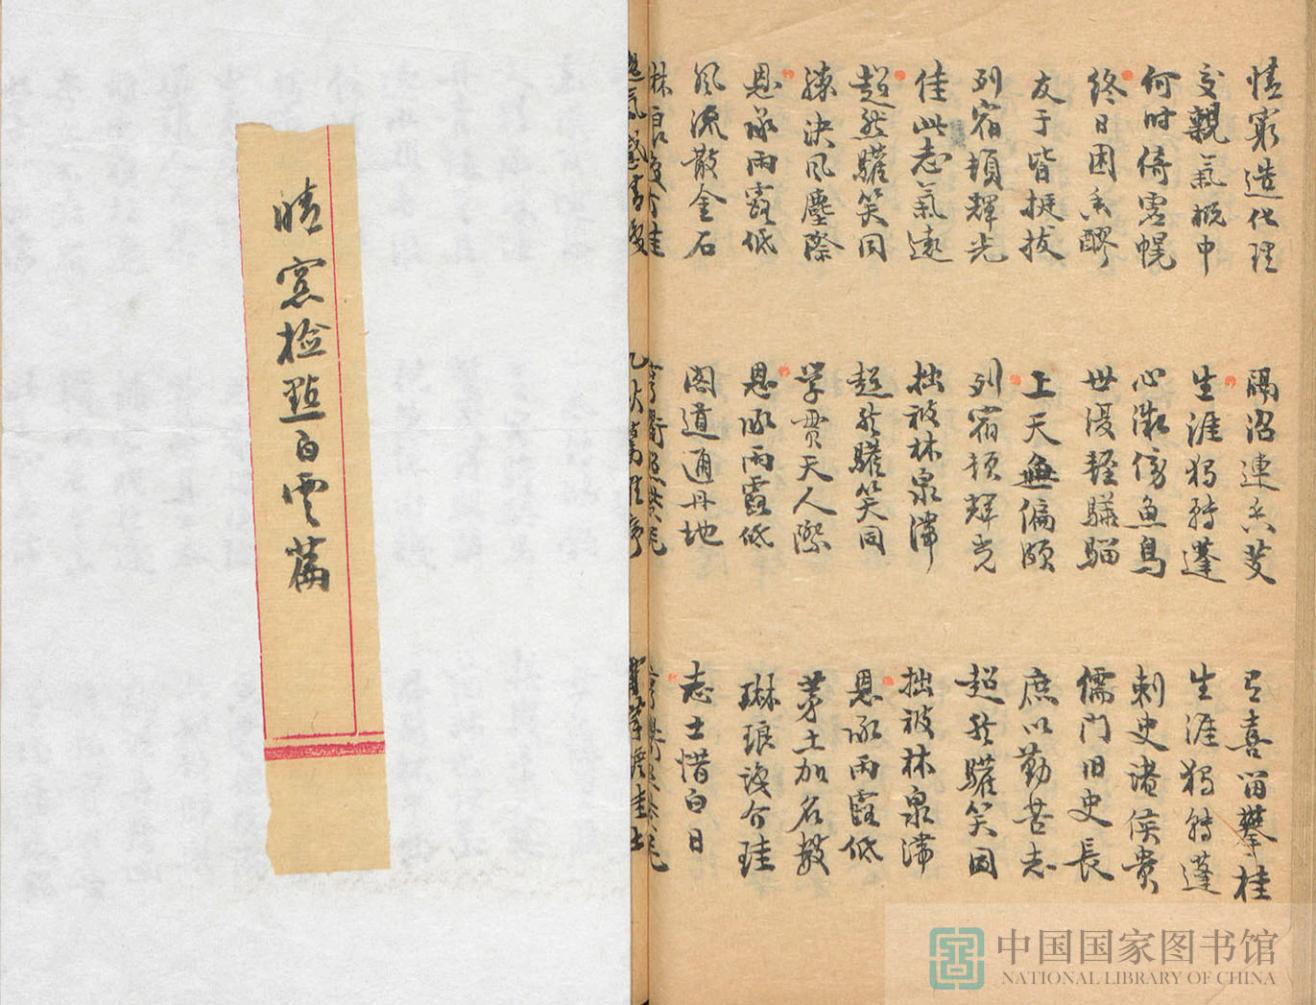 情窮造化理
交親氣概中
何時倚虛幌
終日困香醪
友于皆挺拔
列宿頓輝光
佳此志氣遠
超然驩笑同
決風塵際
恩承雨露低
風流散金石
隔沼連香芰
生涯獨轉蓬
心微傍魚鳥
世復輕驊騮
上天無偏頗
列宿頓輝光
拙被林泉滯
超然驩笑同
學貫天人際
恩承雨露低
閣道通丹地
九秋驚雁序
喜留攀桂
生涯獨轉蓬
刺史諸侯貴
儒門旧史長
庶以勤苦志
超然驩笑同
拙被林泉滯
恩承雨露低
茅土加名數
琳琅識介珪
志士惜白日
晴窓检點白雲篇
中国国家图书馆
NATIONAL LIBRARY OF CHINA